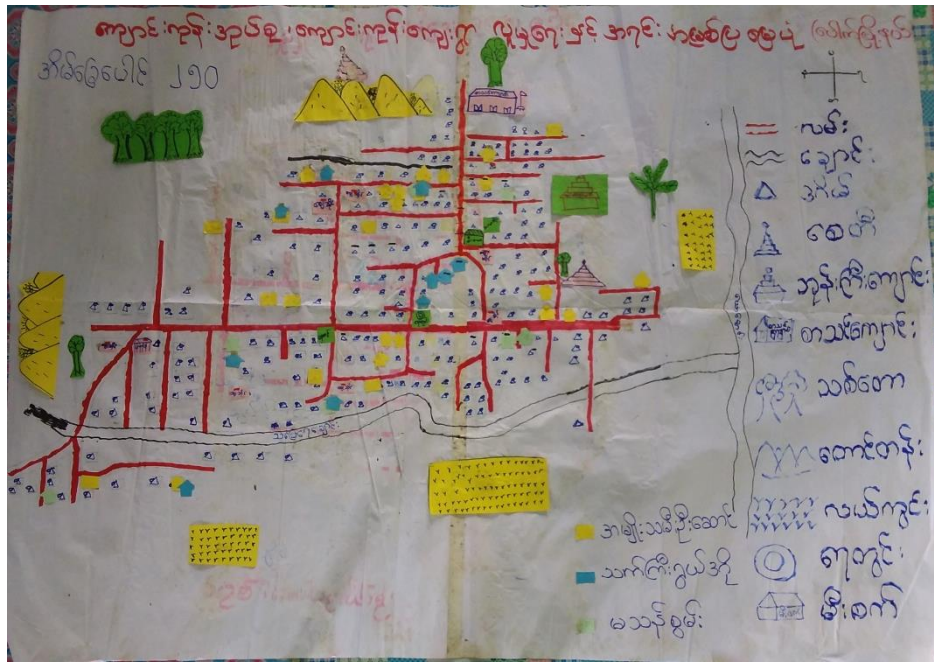 ကျောင်းကုန်းအုပ်စု၊ ကျောင်းကုန်းကျေးရွာ လူမှုရေးနှင့် အရင်းအမြစ်ပြမြေပုံ (ပေါက်မြို့နယ်)
အိမ်ခြေပေါင်း ၂၅၀
လမ်း
ချောင်း
အိမ်
စေတီ
ဘုန်းကြီးကျောင်း
စာသင်ကျောင်း
သစ်တော
တောင်တန်း
လယ်ကွင်း
ရေတွင်း
မီးစက်
အမျိုးသမီးဦးဆောင်
သက်ကြီးရွယ်အို
မသန်စွမ်း